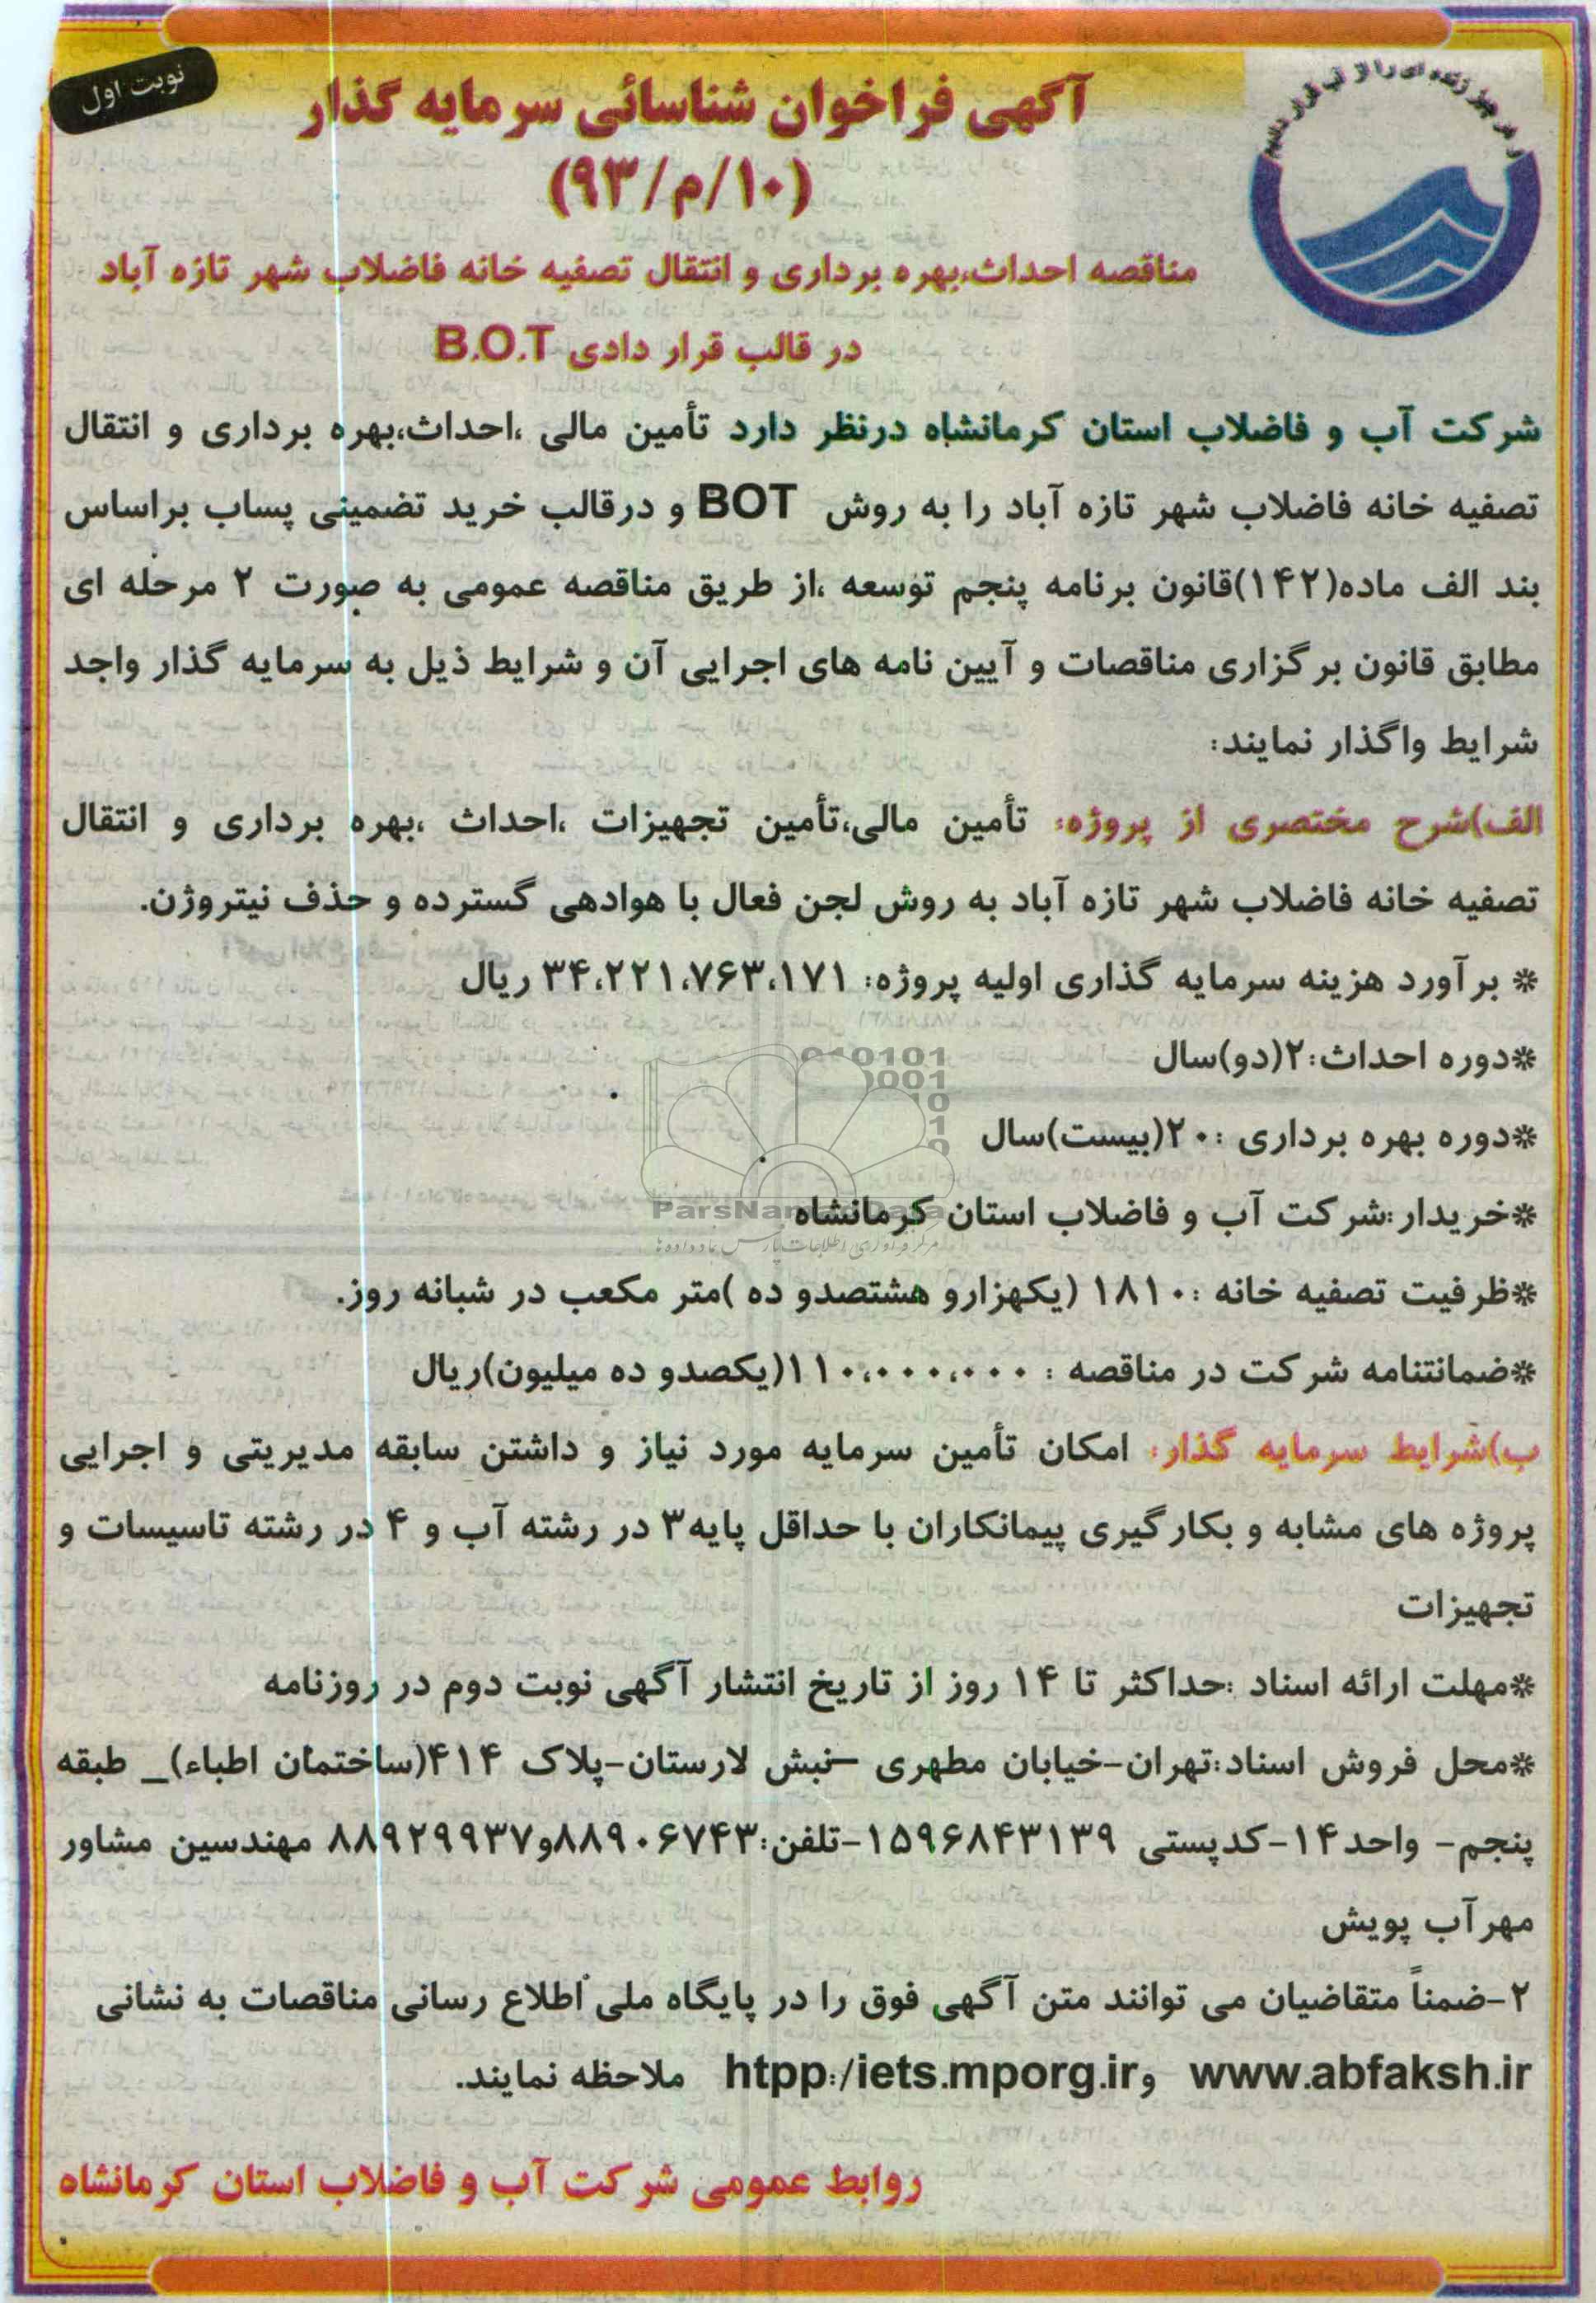 نوبت اول
و هر چیز زنده ای را از آب قرار دادیم
آگهی فراخوان شناسائی سرمایه گذار
(۱۰/م/۹۳)
مناقصه احداث،بهره برداری و انتقال تصفیه خانه فاضلاب شهر تازه آباد
در قالب قرار دادی B.O.T
شرکت آب و فاضلاب استان کرمانشاه درنظر دارد تأمین مالی ،احداث،بهره برداری و انتقال
تصفیه خانه فاضلاب شهر تازه آباد را به روش BOT و درقالب خرید تضمینی پساب براساس
بند الف ماده(۱۴۲)قانون برنامه پنجم توسعه ،از طریق مناقصه عمومی به صورت ۲ مرحله ای
مطابق قانون برگزاری مناقصات و آیین نامه های اجرایی آن و شرایط ذیل به سرمایه گذار واجد
شرایط واگذار نمایند:
الف)شرح مختصری از پروژه: تأمین مالی،تأمین تجهیزات ،احداث ،بهره برداری و انتقال
تصفیه خانه فاضلاب شهر تازه آباد به روش لجن فعال با هوادهی گسترده و حذف نیتروژن.
* برآورد هزینه سرمایه گذاری اولیه پروژه: ۳۴،۲۲۱،۷۶۳،۱۷۱ ریال
*دوره احداث:۲(دو)سال
*دوره بهره برداری :۲۰(بیست)سال
*خریدار:شرکت آب و فاضلاب استان کرمانشاه
ParsNamadData
مرکز فرآوری اطلاعات پارس نماد داده ها
*ظرفیت تصفیه خانه :۱۸۱۰ (یکهزارو هشتصدو ده )متر مکعب در شبانه روز.
*ضمانتنامه شرکت در مناقصه : ۱۱۰،۰۰۰،۰۰۰(یکصدو ده میلیون)ریال
ب)شرایط سرمایه گذار: امکان تأمین سرمایه مورد نیاز و داشتن سابقه مدیریتی و اجرایی
پروژه های مشابه و بکارگیری پیمانکاران با حداقل پایه۳ در رشته آب و ۴ در رشته تاسیسات و
تجهیزات
*مهلت ارائه اسناد :حداکثر تا ۱۴ روز از تاریخ انتشار آگهی نوبت دوم در روزنامه
*محل فروش اسناد:تهران-خیابان مطهری –نبش لارستان-پلاک ۴۱۴(ساختمان اطباء)_ طبقه
پنجم- واحد۱۴-کدپستی ۱۵۹۶۸۴۳۱۳۹-تلفن:۸۸۹۰۶۷۴۳و۸۸۹۲۹۹۳۷ مهندسین مشاور
مهرآب پویش
۲-ضمناً متقاضیان می توانند متن آگهی فوق را در پایگاه ملی اطلاع رسانی مناقصات به نشانی
www.abfaksh.ir وhtpp:/iets.mporg.ir ملاحظه نمایند.
روابط عمومی شرکت آب و فاضلاب استان کرمانشاه